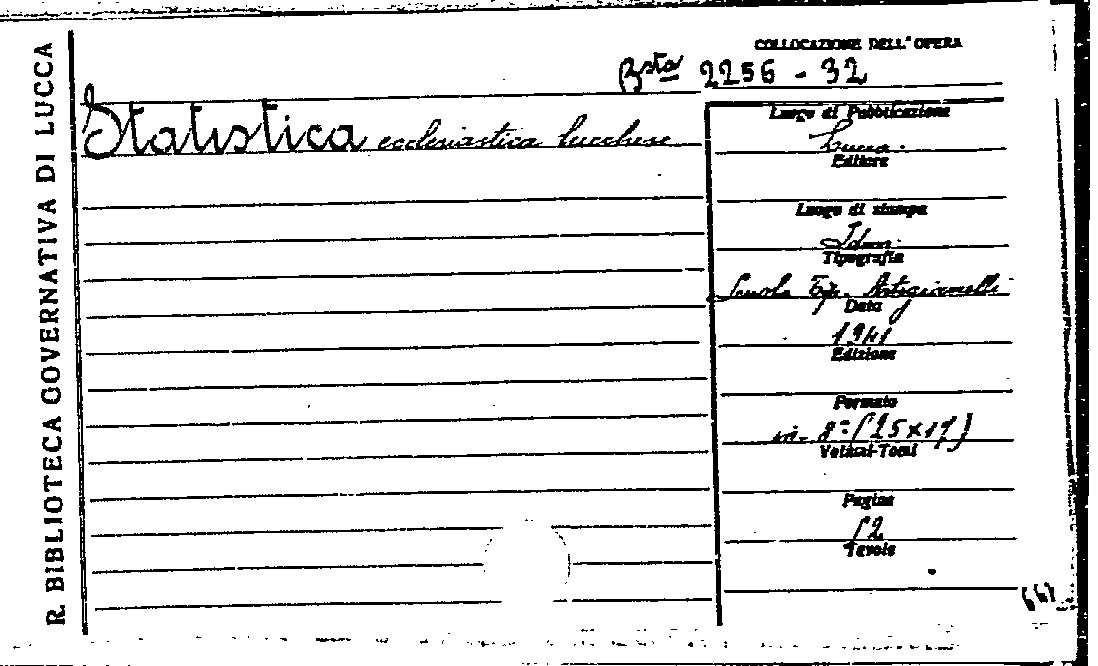 R. BIBLIOTECA GOVERNATIVA DI LUCCA
COLLOCAZIONE DELL'OPERA
Bsta 2256 - 32
Statistica ecclesiastica lucchese
Luogo di Pubblicazione
Lucca.
Editore
Luogo di stampa
Idem.
Tipografia
Scuola Tip. Artigianelli
Data
1941
Edizione
Formato
in- 8º (25x17)
Volumi-Tomi
Pagine
52
Tavole